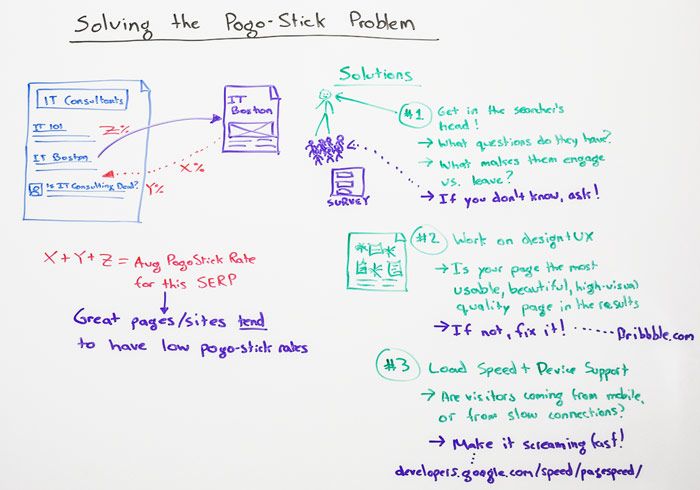 Solving the Pogo-Stick Problem
IT Consultants
IT 101
Z%
IT Boston
Is IT Consulting Dead?
Y%
X%
IT
Boston
X + Y + Z = Avg PogoStick Rate
for this SERP
Great pages/sites tend
to have low pogo-stick rates
Solutions
SURVEY
#1 Get in the searcher's
head!
→ What questions do they have?
→ What makes them engage
vs. leave?
→ If you don't know, ask!
#2 Work on design + UX
→ Is your page the most
usable, beautiful, high-visual
quality page in the results
→ If not, fix it! ...... Dribbble.com
#3 Load Speed + Device Support
→ Are visitors coming from mobile,
or from slow connections?
→ Make it screaming fast!
developers.google.com/speed/pagespeed/